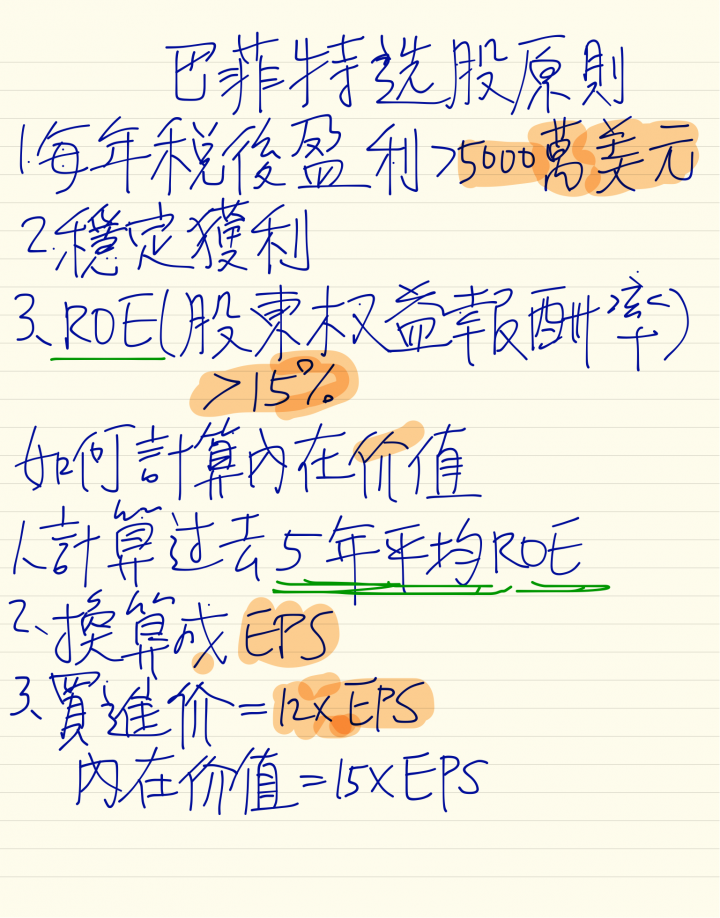 巴菲特选股原則
1.每年税後盈利>5000萬美元
2.穩定獲利
3、ROE(股東权益報酬率)
>15%
如何計算內在价值
1、計算过去5年平均ROE
2、換算成EPS
3、買進价=12xEPS
內在价值=15xEPS